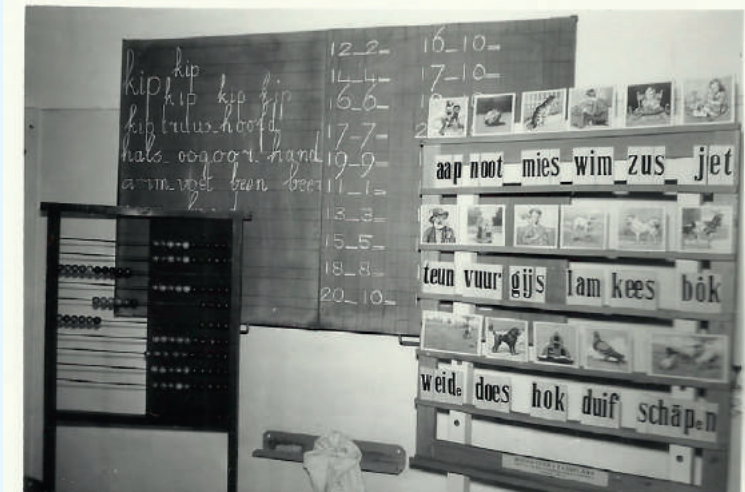 kip kip
kip kip kip
kip truus hoofd
hals oog oor hand
arm voet been
12-2=
14-4=
16-6=
17-7=
19-9=
11-1=
13-3=
15-5=
18-8=
20-10=
16-10=
17-10=
aap noot mies wim zus jet
teun vuur gijs lam kees bok
weide does hok duif schapen